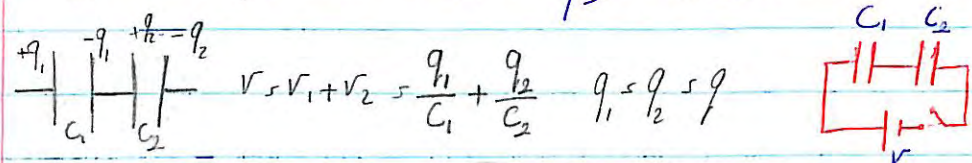 C₁ C₂
+q₁ -q₁ +q₂ -q₂
V = V₁ + V₂ = q₁/C₁ + q₂/C₂ q₁ = q₂ = q
C₁ C₂
V